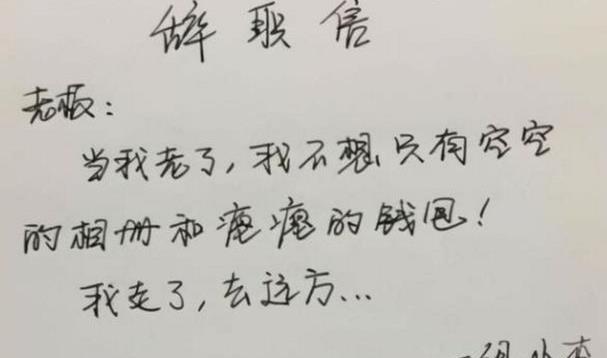 辞职信
老板：
当我老了，我不想只有空空
的相册和瘪瘪的钱包！
我走了，去远方...